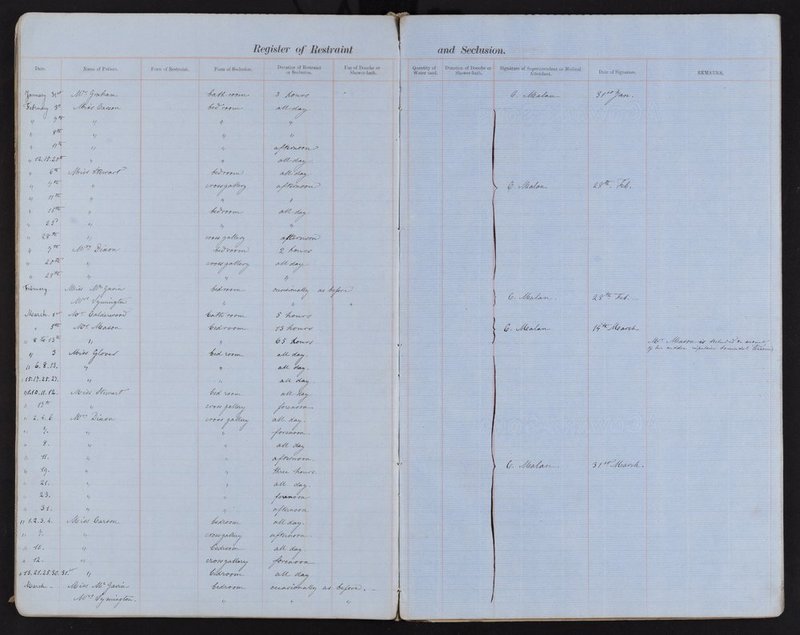 Register of Restraint and Seclusion.
Date. Name of Patient. Form of Restraint. Form of Seclusion. Duration of Restraint or Seclusion. Use of Douche or Shower-bath. Quantity of Water used. Duration of Douche or Shower-Bath. Signature of Superintendent or Medical Attendant. Date of Signature. REMARKS.
January 31st Mrs Graham bath room 3 hours C. Malan 31st Jan.
February 3d Miss Carson bed room all day
" 7th " " "
" 8th " " "
" 11th " " afternoon
" 12.17.20th " " all day
" 6th Miss Stewart bedroom all day
" 7th " cross gallery afternoon C. Malan 28th Feb.
" 11th " " "
" " bedroom all day
" 25 " " "
" 28th " cross gallery afternoon
" 7th Mrs Dixon bedroom 2 hours
" 20th " cross gallery all day
" 28th " " "
February Miss Mc Gavin bedroom occasionally as before
Mrs Symington " " " C. Malan 28th Feb.
March 1st Mrs Calderwood bath room 5 hours
" 5th Mrs Mason bedroom 13 hours C. Malan 14th March
" 8 to 13th " " 65 hours Mrs Mason is secluded on account
" 3 Miss Glover bed room all day of her sudden impulsive
" 6. 8. 13. " " all day
" 15.17.25.27. " " all day
" 10. 11. 12. Miss Stewart bed room all day
" 13th " cross gallery forenoon
" 2. 4. 6 Mrs Dixon cross gallery all day
" 7. " " forenoon
" 8. " " all day
" 11. " " afternoon
" 19. " " three hours C. Malan 31st March.
" 21. " " all day
" 23. " " forenoon
" 31. " " afternoon
" 1.2.3.4. Miss Carson bedroom all day
" 7. " cross gallery afternoon
" 10. " bedroom all day
" 12. " cross gallery forenoon
" 13.21.25.30.31st " bedroom all day
March Miss Mc Gavin bedroom occasionally as before.
Mrs Symington. " " "